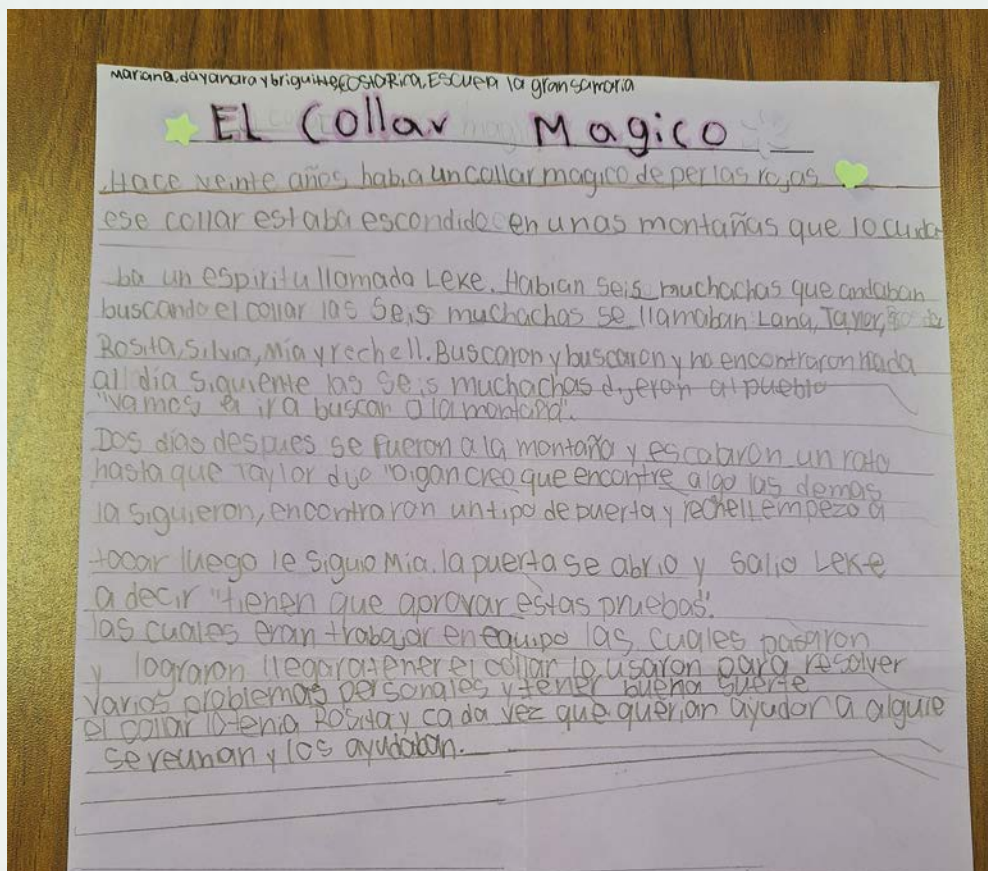 Mariana, dayanara y briguitte COSTARICA, ESCUEla la gran samaria
EL Collar Magico
.Hace veinte años, habia un collar magico de perlas rojas
ese collar estaba escondido en unas montañas que lo cuida
ba un espiritu llamado Leke. Habian seis muchachas que andaban
buscando el collar las seis muchachas se llamaban: Lana, Taylor,
Rosita, Silvia, Mia y rechell. Buscaron y buscaron y no encontraron nada
al dia siguiente las seis muchachas dijeron al pueblo
"vamos a ir a buscar a la montaña".
Dos dias despues se fueron a la montaña y escalaron un rato
hasta que Taylor dijo "oigan creo que encontre algo las demas
la siguieron, encontraron un tipo de puerta y rechell empezo a
tocar luego le siguio Mia. la puerta se abrio y salio Leke
a decir "tienen que aprovar estas pruebas".
las cuales eran trabajar en equipo las cuales pasaron
y lograron llegar a tener el collar lo usaron para resolver
varios problemas personales y tener buena suerte
el collar lo tenia Rosita y cada vez que querian ayudar a alguie
se reunian y los ayudaban.